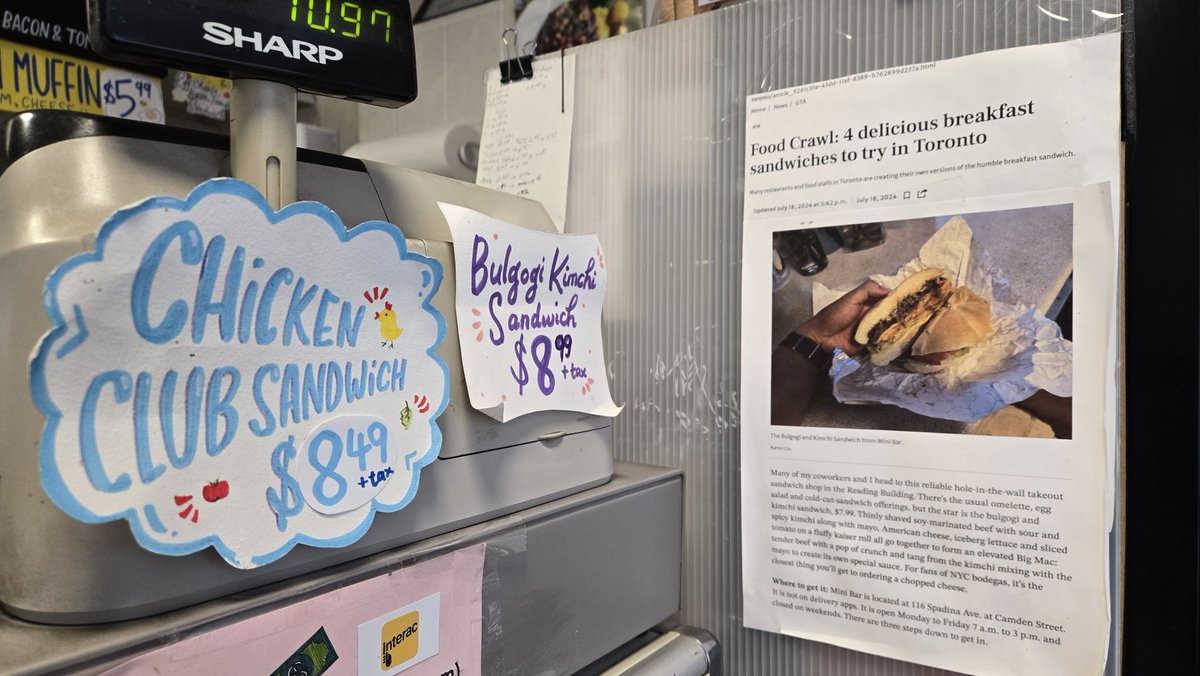 10.97
SHARP
BACON &
MUFFIN $5.99
CHEESE
CHiCKEN
CLUB SANDWiCH
$8.49
+tax
Bulgogi Kimchi
Sandwich
$8.99
+tax
Interac
Home / News / GTA
GTA
Food Crawl: 4 delicious breakfast
sandwiches to try in Toronto
Many restaurants and food stalls in Toronto are creating their own versions of the humble breakfast sandwich.
Updated July 18, 2024 at 3:42 p.m.
July 18, 2024
The Bulgogi and Kimchi Sandwich from Mini Bar.
Karon Liu
Many of my coworkers and I head to this reliable hole-in-the-wall takeout
sandwich shop in the Reading Building. There's the usual omelette, egg
salad and cold-cut-sandwich offerings, but the star is the bulgogi and
kimchi sandwich, $7.99. Thinly shaved soy-marinated beef with sour and
spicy kimchi along with mayo, American cheese, iceberg lettuce and sliced
tomato on a fluffy kaiser roll all go together to form an elevated Big Mac:
tender beef with a pop of crunch and tang from the kimchi mixing with the
mayo to create its own special sauce. For fans of NYC bodegas, it's the
closest thing you'll get to ordering a chopped cheese.
Where to get it: Mini Bar is located at 116 Spadina Ave. at Camden Street.
It is not on delivery apps. It is open Monday to Friday 7 a.m. to 3 p.m. and
closed on weekends. There are three steps down to get in.